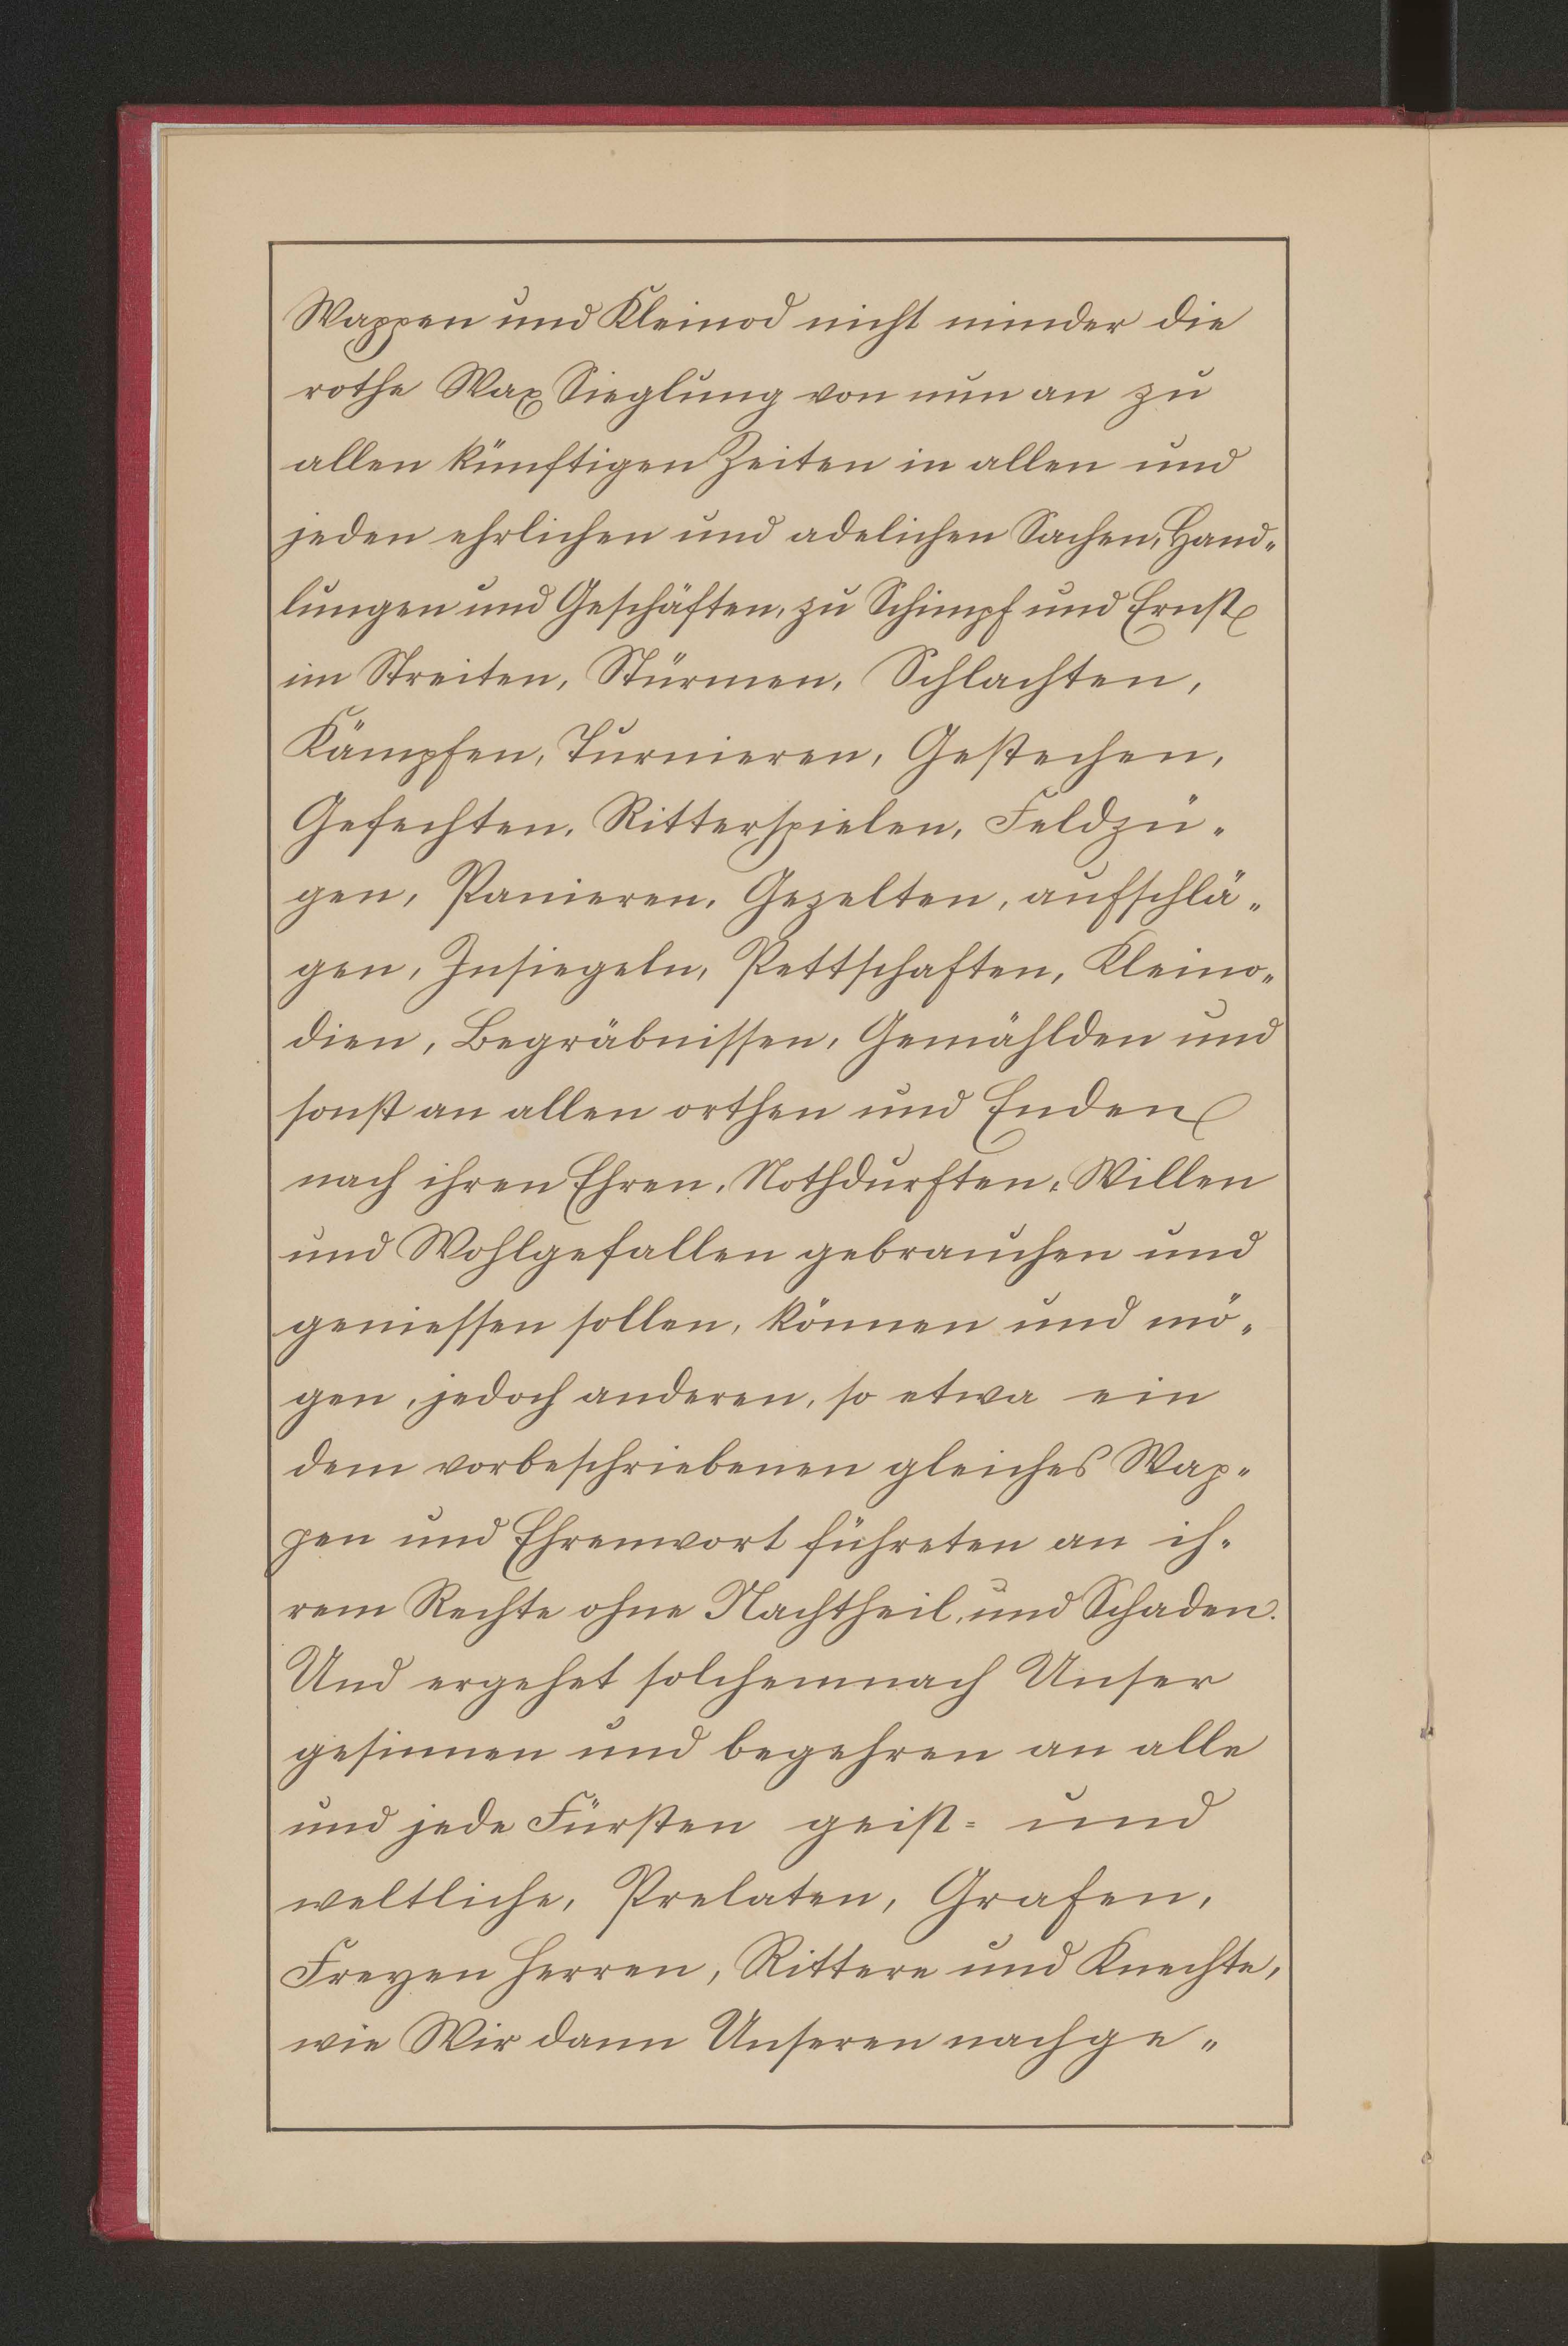 Wappen und Kleinod nicht minder die
rothe Wax Sieglung von nun an zu
allen künftigen Zeiten in allen und
jeden ehrlichen und adelichen Sachen, Hand„
lungen und Geschäften, zu Schimpf und Ernst
im Streiten, Stürmen, Schlachten,
Kämpfen, Turnieren, Gestechen,
Gefechten, Ritterspielen, Feldzü„
gen, Panieren, Gezelten, aufschlä„
gen, Insiegeln, Pettschaften, Kleino„
dien, Begräbnissen, Gemählden und
sonst an allen orthen und Enden
nach ihren Ehren, Nothdurften, Willen
und Wohlgefallen gebrauchen und
geniessen sollen, können und mö„
gen, jedoch anderen, so etwa ein
dem vorbeschriebenen gleiches Wap„
pen und Ehrenwort führeten an ih„
rem Rechte ohne Nachtheil, und Schaden.
Und ergehet solchemnach Unser
gesinnen und begehren an alle
und jede Fürsten geist= und
weltliche, Prelaten, Grafen,
Freyen Herren, Rittere und Knechte,
wie Wir dann Unseren nachge„